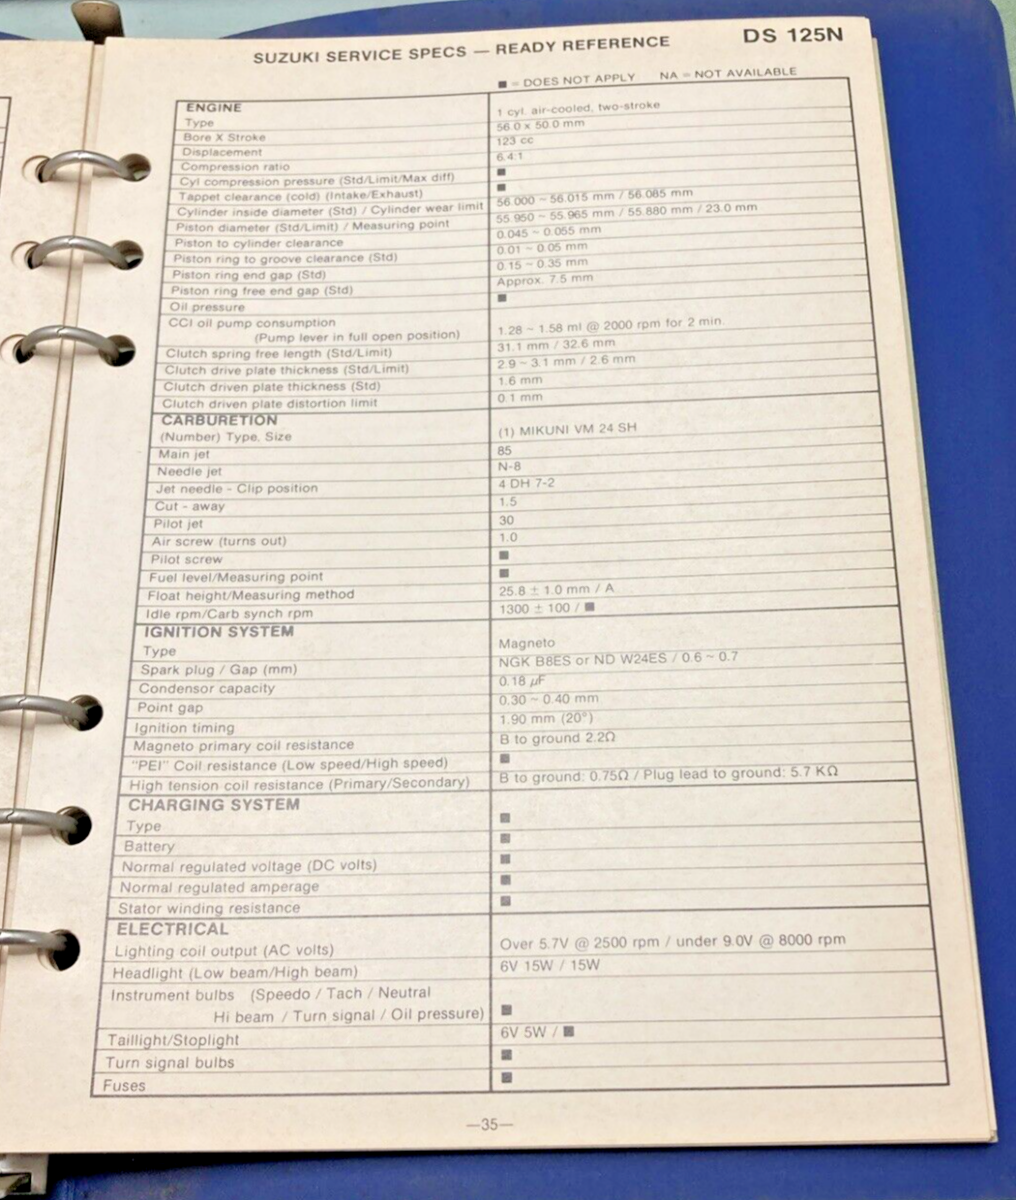 SUZUKI SERVICE SPECS — READY REFERENCE DS 125N
■ = DOES NOT APPLY NA = NOT AVAILABLE
ENGINE
Type 1 cyl. air-cooled, two-stroke
Bore X Stroke 56.0 x 50.0 mm
Displacement 123 cc
Compression ratio 6.4:1
Cyl compression pressure (Std/Limit/Max diff) ■
Tappet clearance (cold) (Intake/Exhaust) ■
Cylinder inside diameter (Std) / Cylinder wear limit 56.000 ~ 56.015 mm / 56.085 mm
Piston diameter (Std/Limit) / Measuring point 55.950 ~ 55.965 mm / 55.880 mm / 23.0 mm
Piston to cylinder clearance 0.045 ~ 0.055 mm
Piston ring to groove clearance (Std) 0.01 ~ 0.05 mm
Piston ring end gap (Std) 0.15 ~ 0.35 mm
Piston ring free end gap (Std) Approx. 7.5 mm
Oil pressure ■
CCI oil pump consumption
(Pump lever in full open position) 1.28 ~ 1.58 ml @ 2000 rpm for 2 min.
Clutch spring free length (Std/Limit) 31.1 mm / 32.6 mm
Clutch drive plate thickness (Std/Limit) 2.9 ~ 3.1 mm / 2.6 mm
Clutch driven plate thickness (Std) 1.6 mm
Clutch driven plate distortion limit 0.1 mm
CARBURETION
(Number) Type, Size (1) MIKUNI VM 24 SH
Main jet 85
Needle jet N-8
Jet needle - Clip position 4 DH 7-2
Cut - away 1.5
Pilot jet 30
Air screw (turns out) 1.0
Pilot screw ■
Fuel level/Measuring point ■
Float height/Measuring method 25.8 ± 1.0 mm / A
Idle rpm/Carb synch rpm 1300 ± 100 / ■
IGNITION SYSTEM
Type Magneto
Spark plug / Gap (mm) NGK B8ES or ND W24ES / 0.6 ~ 0.7
Condensor capacity 0.18 µF
Point gap 0.30 ~ 0.40 mm
Ignition timing 1.90 mm (20°)
Magneto primary coil resistance B to ground 2.2Ω
"PEI" Coil resistance (Low speed/High speed) ■
High tension coil resistance (Primary/Secondary) B to ground: 0.75Ω / Plug lead to ground: 5.7 KΩ
CHARGING SYSTEM
Type ■
Battery ■
Normal regulated voltage (DC volts) ■
Normal regulated amperage ■
Stator winding resistance ■
ELECTRICAL
Lighting coil output (AC volts) Over 5.7V @ 2500 rpm / under 9.0V @ 8000 rpm
Headlight (Low beam/High beam) 6V 15W / 15W
Instrument bulbs (Speedo / Tach / Neutral
Hi beam / Turn signal / Oil pressure) ■
Taillight/Stoplight 6V 5W / ■
Turn signal bulbs ■
Fuses ■
—35—